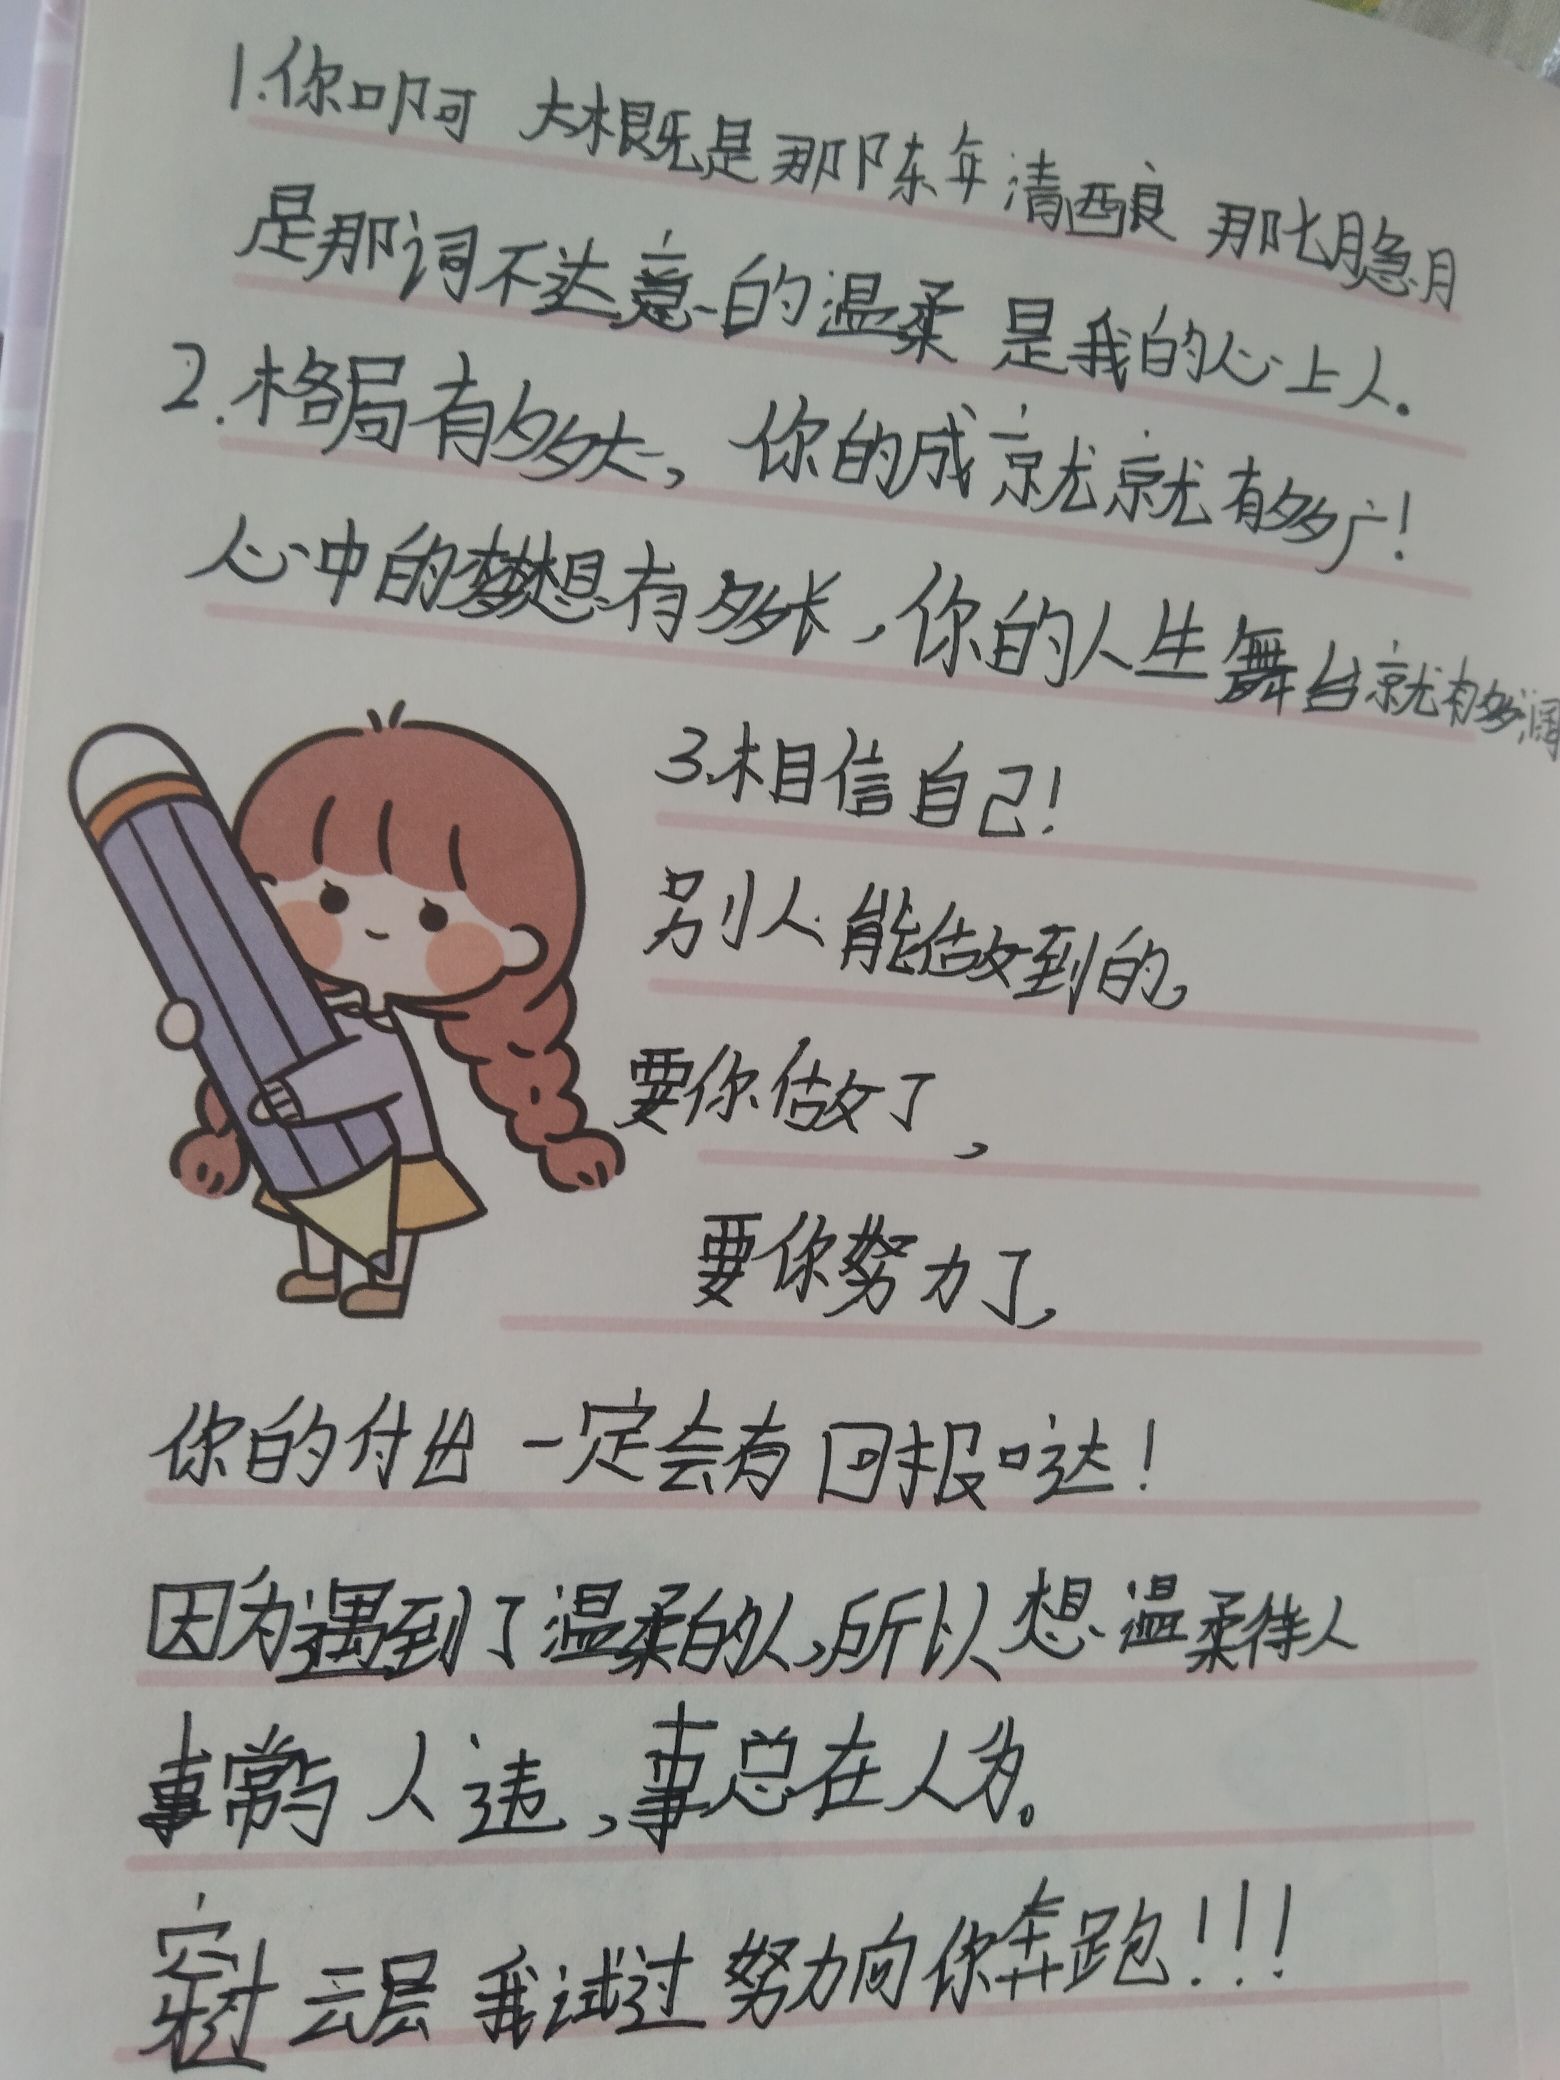 1.你啊 大概是那陈年清酿 那比月隐月
是那词不达意的温柔 是我的心上人.
2.格局有多大，你的成就就有多广！
心中的梦想有多长，你的人生舞台就有多阔
3.相信自己！
别人能做到的，
要你做了，
要你努力了，
你的付出 一定会有回报哒！
因为遇到了温柔的人，所以想温柔待人
事常与人违，事总在人为。
穿过云层 我试过努力向你奔跑！！！